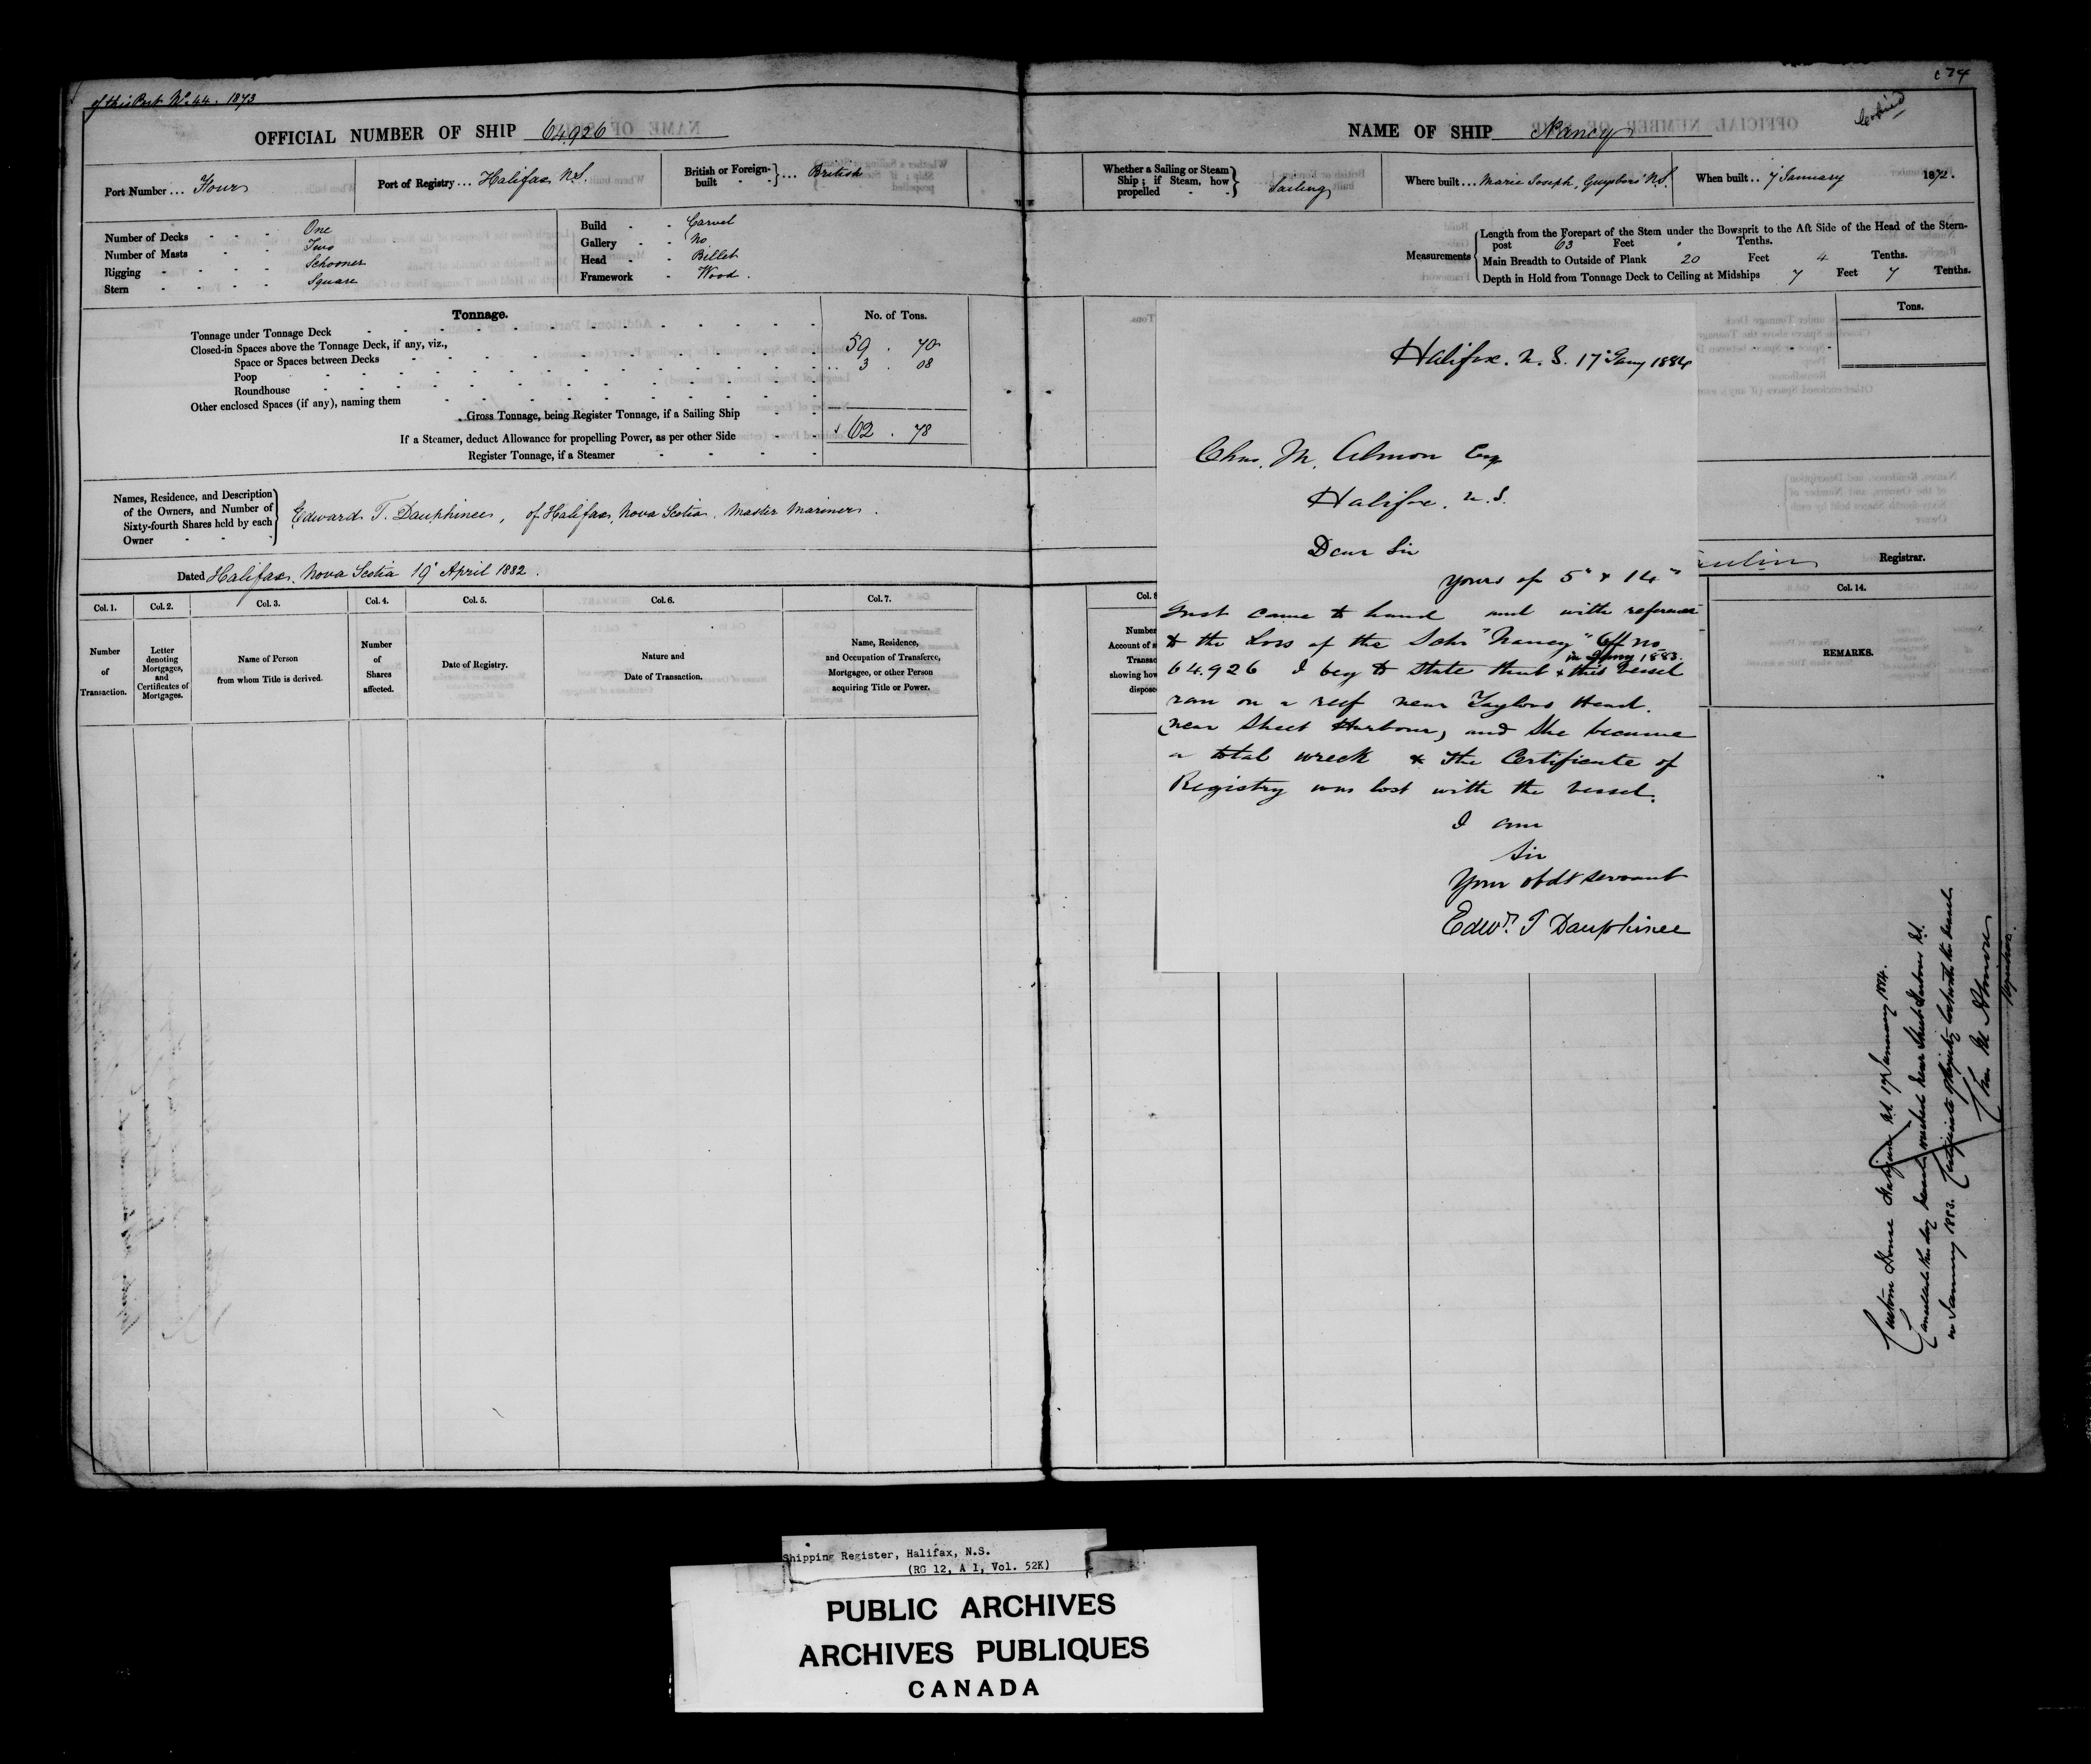 of this Port No. 44. 1873
OFFICIAL NUMBER OF SHIP 64,926
Port Number ... Four
Port of Registry ... Halifax N.S.
British or Foreign-built } ... British
Number of Decks - - - One
Number of Masts - - Two
Rigging - - - - Schooner
Stern - - - - Square
Build - - Carvel
Gallery - - No
Head - - Billet
Framework - Wood.
Tonnage. No. of Tons.
Tonnage under Tonnage Deck 59 . 70
Closed-in Spaces above the Tonnage Deck, if any, viz.,
Space or Spaces between Decks 3 . 08
Poop
Roundhouse
Other enclosed Spaces (if any), naming them
Gross Tonnage, being Register Tonnage, if a Sailing Ship 62 . 78
If a Steamer, deduct Allowance for propelling Power, as per other Side
Register Tonnage, if a Steamer
Names, Residence, and Description
of the Owners, and Number of
Sixty-fourth Shares held by each
Owner
Edward T. Dauphinee, of Halifax, Nova Scotia, Master Mariner.
Dated Halifax, Nova Scotia 19 April 1882.
Col. 1. Col. 2. Col. 3. Col. 4. Col. 5. Col. 6. Col. 7.
Number of Transaction.
Letter denoting Mortgages, and Certificates of Mortgages.
Name of Person from whom Title is derived.
Number of Shares affected.
Date of Registry.
Nature and Date of Transaction.
Name, Residence, and Occupation of Transferee, Mortgagee, or other Person acquiring Title or Power.
NAME OF SHIP Nancy
Whether a Sailing or Steam Ship; if Steam, how propelled } Sailing
Where built ... Marie Joseph, Guysboro' N.S.
When built .. 7 January 1872.
Measurements
Length from the Forepart of the Stem under the Bowsprit to the Aft Side of the Head of the Stern-
post 63 Feet Tenths.
Main Breadth to Outside of Plank 20 Feet 4 Tenths.
Depth in Hold from Tonnage Deck to Ceiling at Midships 7 Feet 7 Tenths.
Tons.
Registrar.
Col. 8
Col. 14.
Number
Account of
Transac
showing how
dispose
REMARKS.
Halifax. N. S. 17 Jany 1884
Chas. M. Almon Esq
Halifax. N.S.
Dear Sir
Yours of 5" & 14"
Just came to hand and with reference
to the Loss of the Schr "Nancy" Off no
in Jany 1883.
64.926 I beg to state that this vessel
ran on a reef near Taylors Head.
(near Sheet Harbour) and she became
a total wreck & the Certificate of
Registry was lost with the vessel.
I am
Sir
Your obdt servant
Edwd. T Dauphinee
Custom House Halifax N.S. 17 January 1884.
Cancelled this day Vessel wrecked near Sheet Harbour N.S.
in January 1883. Certificate of Registry lost with the vessel.
Chas M Almon
Registrar.
Shipping Register, Halifax, N.S.
(RG 12, A 1, Vol. 52K)
PUBLIC ARCHIVES
ARCHIVES PUBLIQUES
CANADA